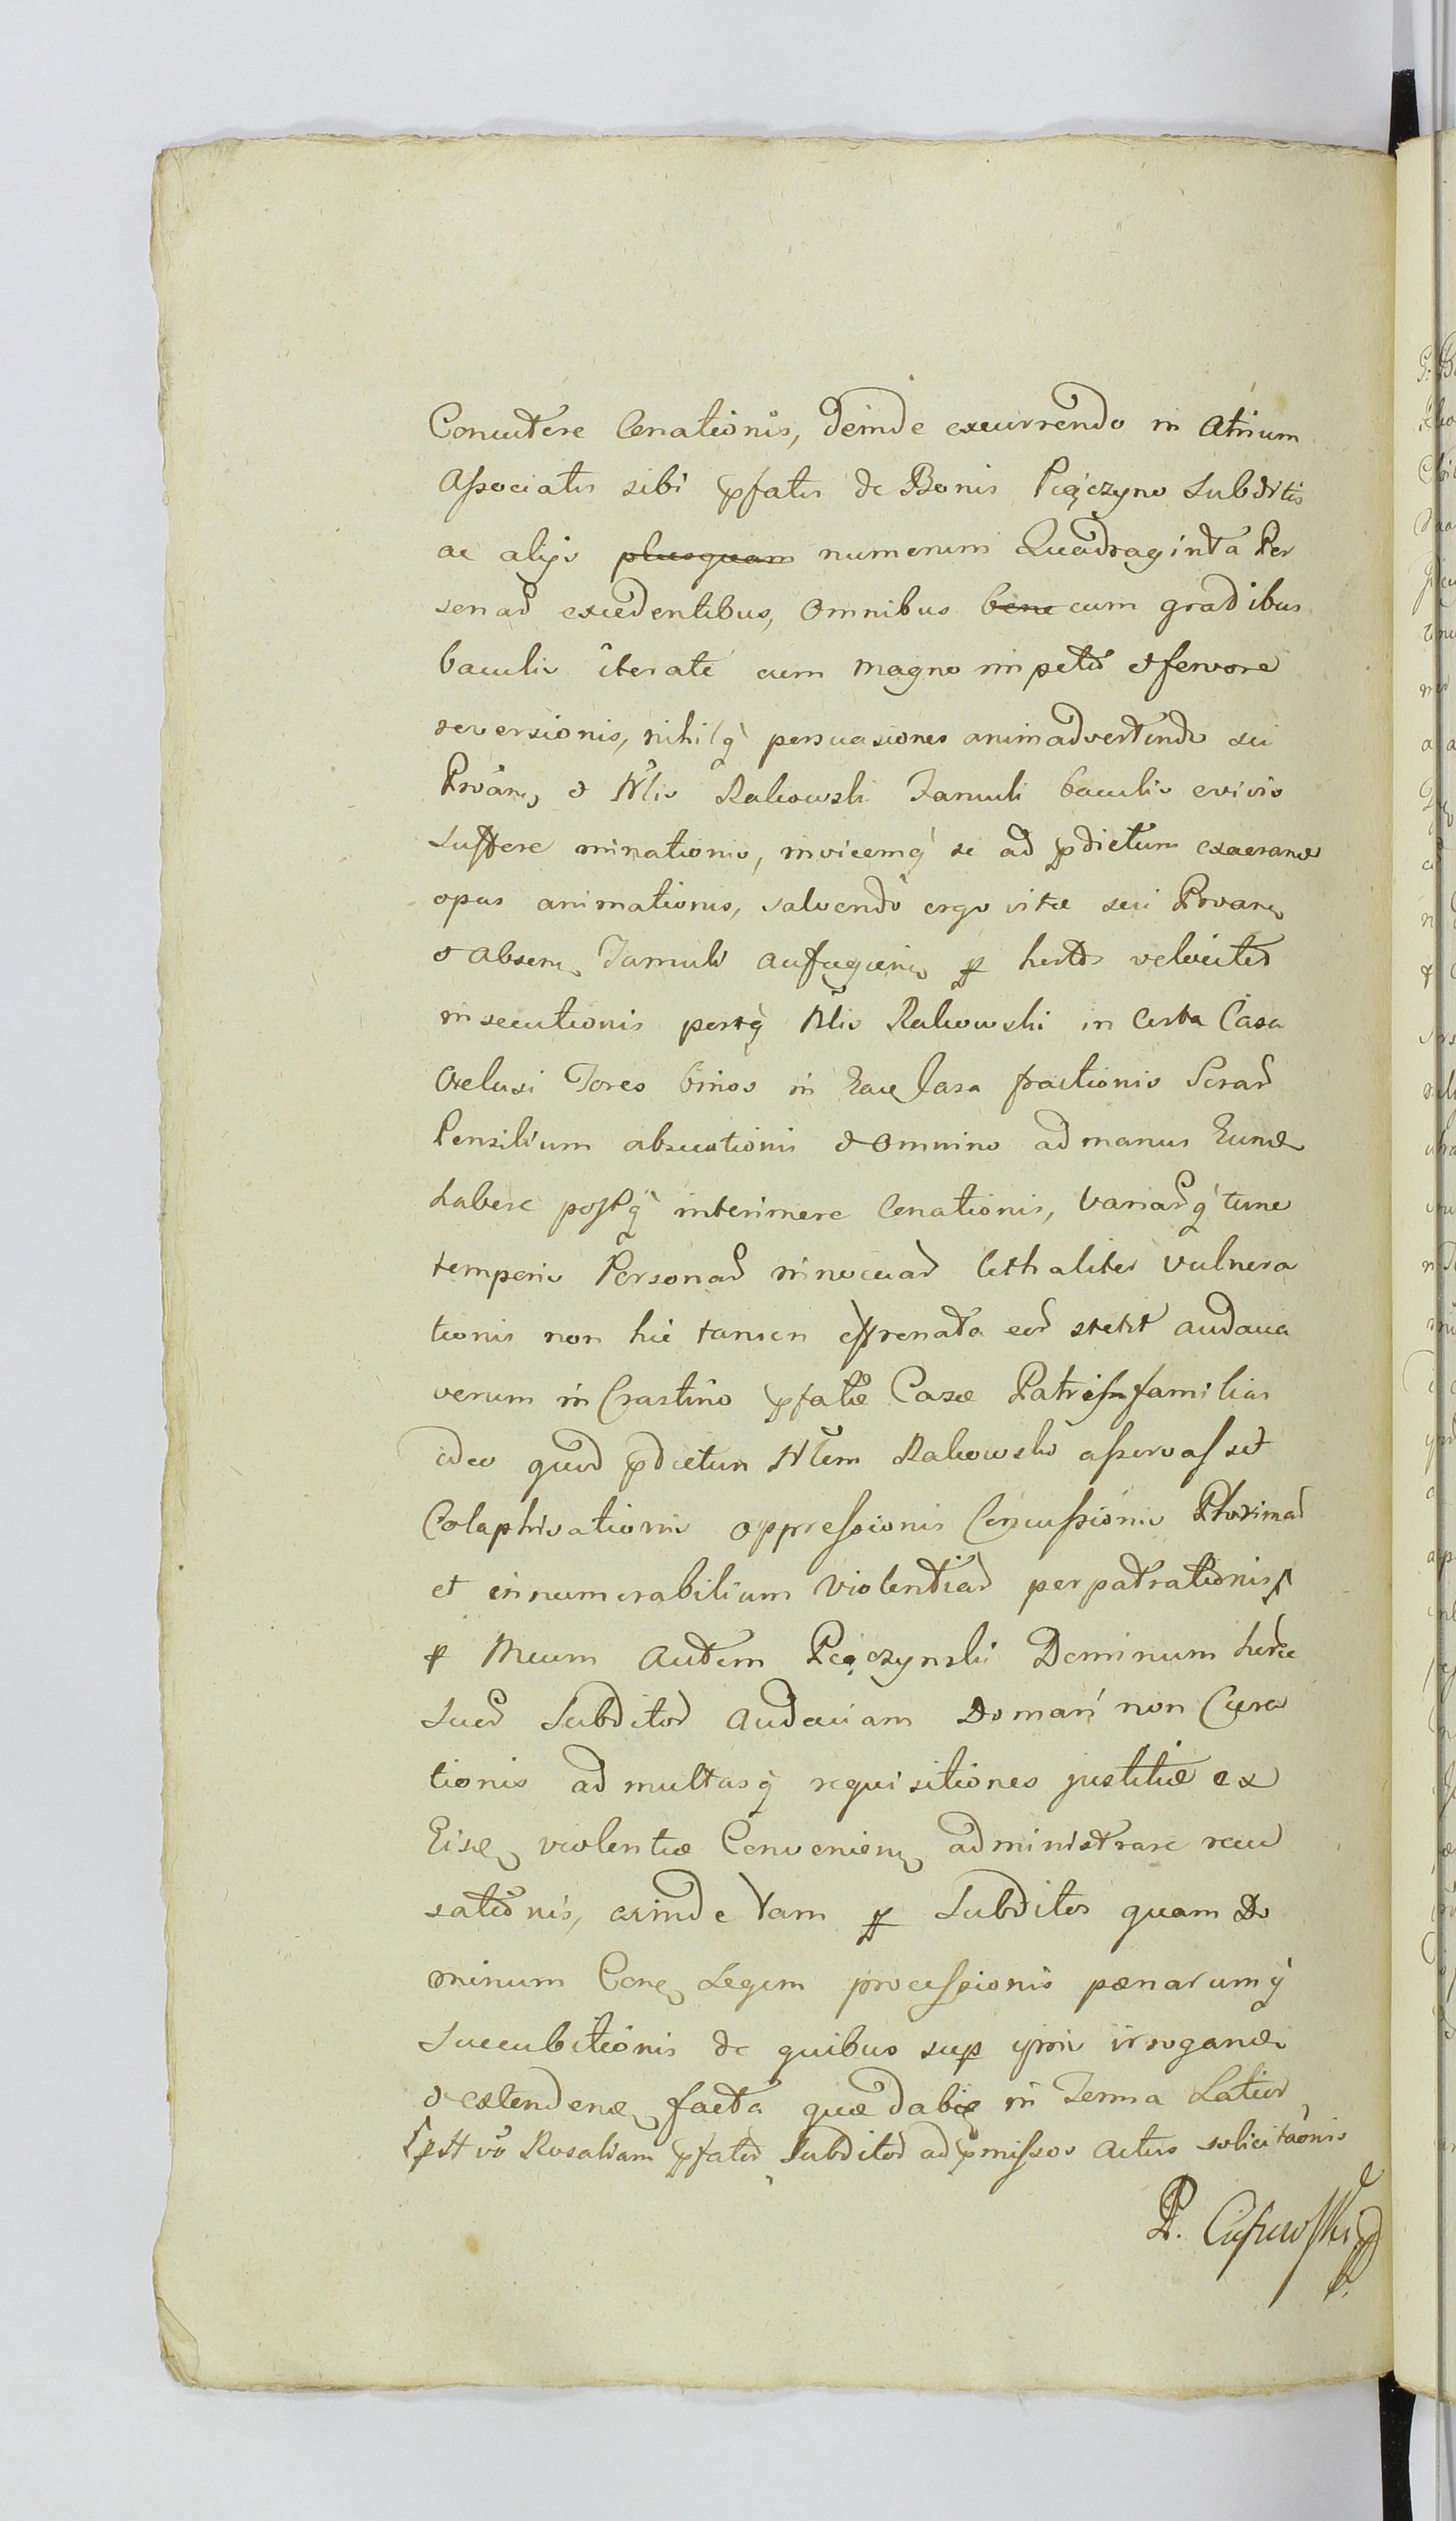 Concutere Conationis, deinde excurrendo in Atrium
Associatis sibi pfatis de Bonis Pęczyno Subditis
ac alijs plusquam numerum Quadraginta Per
sonar excedentibus, Omnibus bene cum gradibus
baculis iterate cum magno impetu et fervore
reversionis, nihilq persuasiones animadvertendo sui
Proãn, et Nlis Rakowski Famuli baculis evivis
suffere minationis, invicemq se ad pdictum exaeran
opus animationis, salvendo ergo vitæ sui Proan
et Absen, Famuli aufugien, p hortos velociter
insecutionis postq Nlis Rakowski in Certa Casa
Oclusi Fores binos in Eade Casa fractionis Serar
Pensilium abscutionis et Omnino ad manus Eund
habere postq interimere Conationis, Variarq tunc
temporis Personar innocuar lethaliter Vulnera
tionis non hic tamen effrenata eor stetit audacia
verum in Crastino pfatæ Casæ Patremfamilias
ideo quod pdictum Nlem Rakowski asservasset
Colaphisationis oppressionis Concussionis Plurimar
et innumerabilium Violentiar perpatrationis
p Meum Autem Pęczynski Dominum hunce
Suor Subditor Audaciam Domari non Cura
tionis ad multasq requisitiones justitiæ ex
Eisd, violentiæ Convenien, administrare recu
sationis, exinde Tam p Subditos quam Do
minum Con, Legem processionis pœnarumq
Succubitionis de quibus sup ipsis irrogand
et extenden, facta quæ dabit in Termino Latior
p H vo Rosaliam pfator Subditor ad pmissos actus solicitaonis
P. Ciszewski